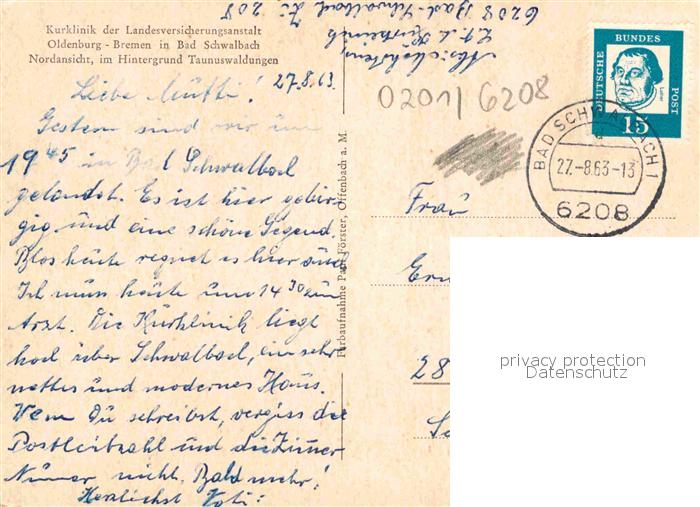 Kurklinik der Landesversicherungsanstalt
Oldenburg - Bremen in Bad Schwalbach
Nordansicht, im Hintergrund Taunuswaldungen
27.8.63
Liebe Mutti!
Gestern sind wir um
19 45 in Bad Schwalbach
gelandet. Es ist hier gebir-
gig und eine schöne Gegend.
Blos heute regnet es hier
Ich muss heute um 14 30 zum
Arzt. Die Kurklinik liegt
hoch über Schwalbach, ein sehr
nettes und modernes Haus.
Wenn Du schreibst, vergiss die
Postleitzahl und die Zimer
Numer nicht. Bald mehr!
Herzlichst
6208 Bad-Schwalbach Zi 208
Farbaufnahme Paul Förster, Offenbach a. M.
0201/6208
DEUTSCHE BUNDES POST
15
BAD SCHWALBACH 1
27.-8.63-13
6208
Frau
28
privacy protection
Datenschutz